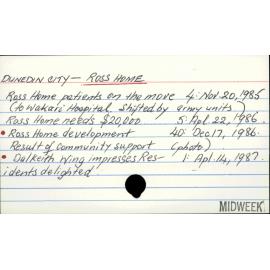 DUNEDIN CITY — ROSS HOME
Ross Home patients on the move 4: Nov 20, 1985
(to Wakari Hospital. Shifted by army units)
Ross Home needs $20,000. 5: Apl. 22, 1986.
• Ross Home development 40: Dec. 17, 1986.
Result of community support (photo)
• Dalkeith Wing impresses Res- 1: Apl. 14, 1987.
idents delighted.
MIDWEEK.